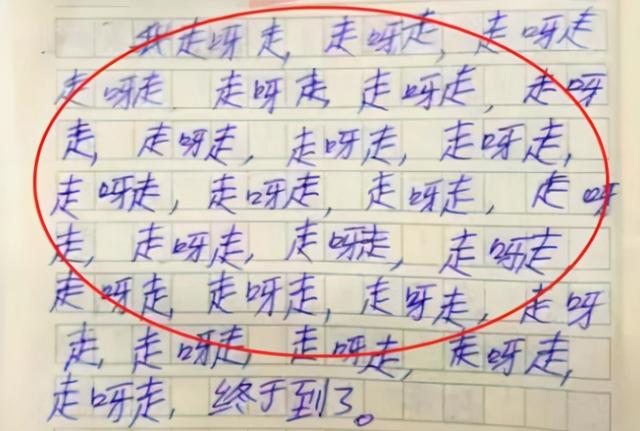 我走呀走，走呀走，走呀走
走呀走 走呀走 走呀走，走呀
走，走呀走，走呀走，走呀走，
走呀走，走呀走，走呀走，走呀
走，走呀走，走呀走，走呀走
走呀走，走呀走，走呀走，走呀
走，走呀走，走呀走，走呀走，
走呀走，终于到了。